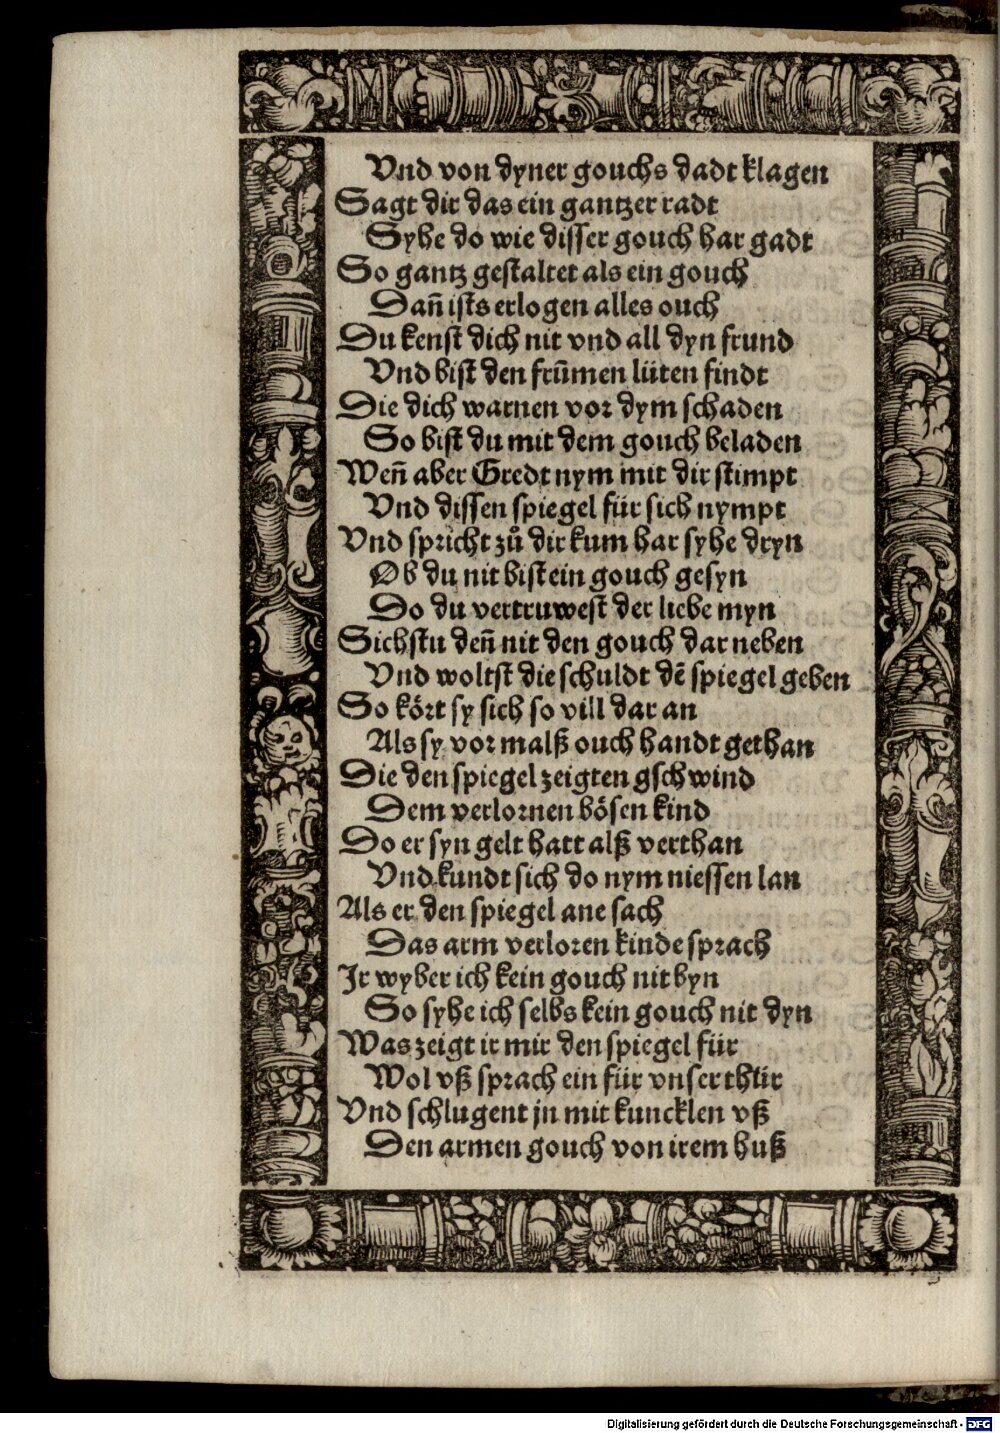 Vnd von dyner gouchs dadt klagen
Sagt dir das ein gantzer radt
Syhe do wie disser gouch har gadt
So gantz gestaltet als ein gouch
Dañ ists erlogen alles ouch
Du kenst dich nit vnd all dyn frund
Vnd bist den frūmen lüten findt
Die dich warnen vor dym schaden
So bist du mit dem gouch beladen
Weñ aber Gredt nym mit dir stimpt
Vnd dissen spiegel für sich nympt
Vnd spricht zů dir kum har syhe dryn
Ob du nit bist ein gouch gesyn
Do du vertruwest der liebe myn
Sichstu deñ nit den gouch dar neben
Vnd woltst die schuldt dē spiegel geben
So kört sy sich so vill dar an
Als sy vor malß ouch handt gethan
Die den spiegel zeigten gschwind
Dem verlornen bösen kind
Do er syn gelt hatt alß verthan
Vnd kundt sich do nym niessen lan
Als er den spiegel ane sach
Das arm verloren kinde sprach
Ir wyber ich kein gouch nit byn
So syhe ich selbs kein gouch nit dyn
Was zeigt ir mir den spiegel für
Wol vß sprach ein für vnser thür
Vnd schlugent jn mit kuncklen vß
Den armen gouch von irem huß
Digitalisierung gefördert durch die Deutsche Forschungsgemeinschaft - DFG